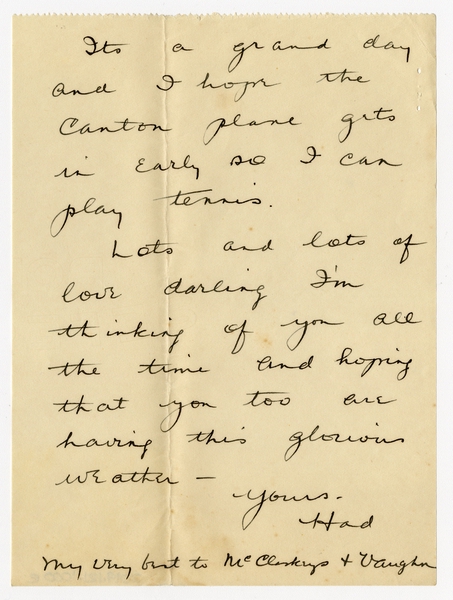 Its a grand day
and I hope the
Canton plane gets
in early so I can
play tennis.
Lots and lots of
love darling I'm
thinking of you all
the time and hoping
that you too are
having this glorious
weather -
Yours.
Had
My very best to McCloskeys + Vaughn